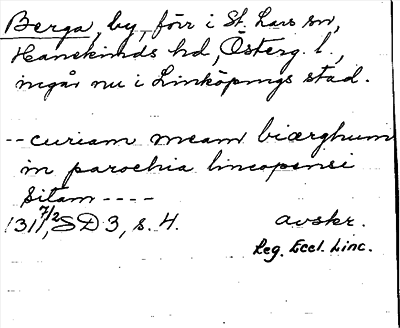 Berga, by, förr i St. Lars sn,
Hanekinds hd, Österg. l.,
ingår nu i Linköpings stad.
-- curiam meam biærghum
in parochia lincopensi
sitam ----
1311 7/2, SD 3, s. 4. avskr.
Reg. Eccl. Linc.